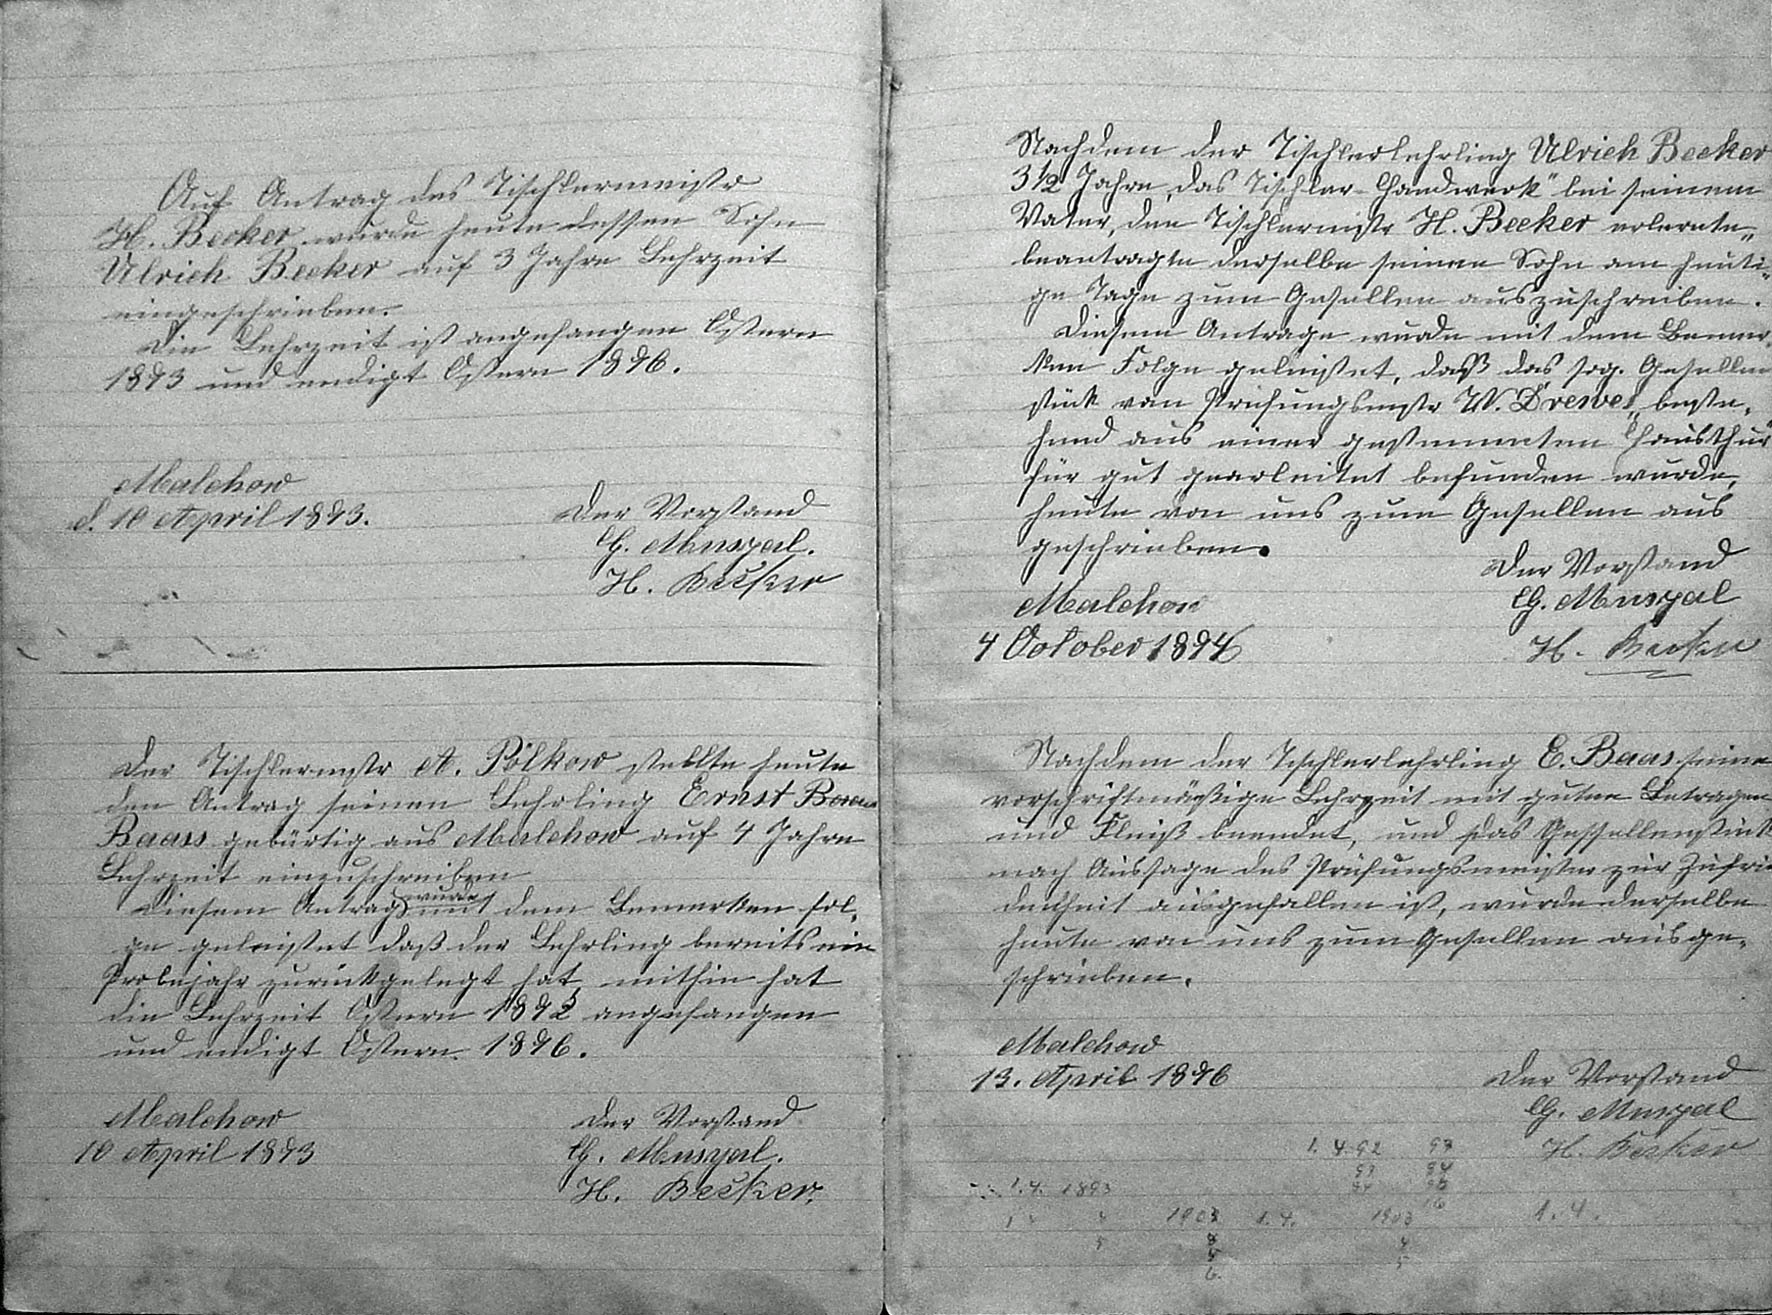 Auf Antrag des Tischlermeistr
H. Becker wurde heute dessen Sohn
Ulrich Becker auf 3 Jahre Lehrzeit
eingeschrieben.
Die Lehrzeit ist angefangen Ostern
1893 und endigt Ostern 1896.
Malchow
d. 10 April 1893.
Der Vorstand
H. Becker
Der Tischlermstr A. Pölkow stellte heute
den Antrag seinen Lehrling Ernst
Baass gebürtig aus Malchow auf 4 Jahre
Lehrzeit einzuschreiben
wurde
Diesem Antrag mit dem Bemerken fol-
ge geleistet daß der Lehrling bereits ein
Probejahr zurückgelegt hat, mithin hat
die Lehrzeit Ostern 1892 angefangen
und endigt Ostern 1896.
Malchow
10 April 1893
Der Vorstand
H. Becker.
Nachdem der Tischlerlehrling Ulrich Becker
3 1/2 Jahre das Tischler-Handwerk" bei seinem
Vater, den Tischlermstr H. Becker erlernte,
beantragte derselbe seinen Sohn am heuti-
ge Tage zum Gesellen auszuschreiben.
Diesem Antrage wurde mit dem Bemer-
ken Folge geleistet, daß das sog. Gesellen
stück von Prüfungsmstr W. Drewes, beste-
hend aus einer gestemmten Hausthür
für gut gearbeitet befunden wurde,
heute von uns zum Gesellen aus
geschrieben.
Der Vorstand
Malchow
4 October 1896
H. Becker
Nachdem der Tischlerlehrling E. Baas seine
vorschriftmäßige Lehrzeit mit guten Betragen
und Fleiß beendet, und das Gesellenstück
nach Aussage des Prüfungsmeister zur Zufrie
denheit ausgefallen ist, wurde derselbe
heute von uns zum Gesellen ausge-
schrieben.
Malchow
13. April 1896
Der Vorstand
H. Becker
1. 4. 92 93
93 94
1. 4. 1893
1903 1. 4. 1903 1. 4.
5
6.